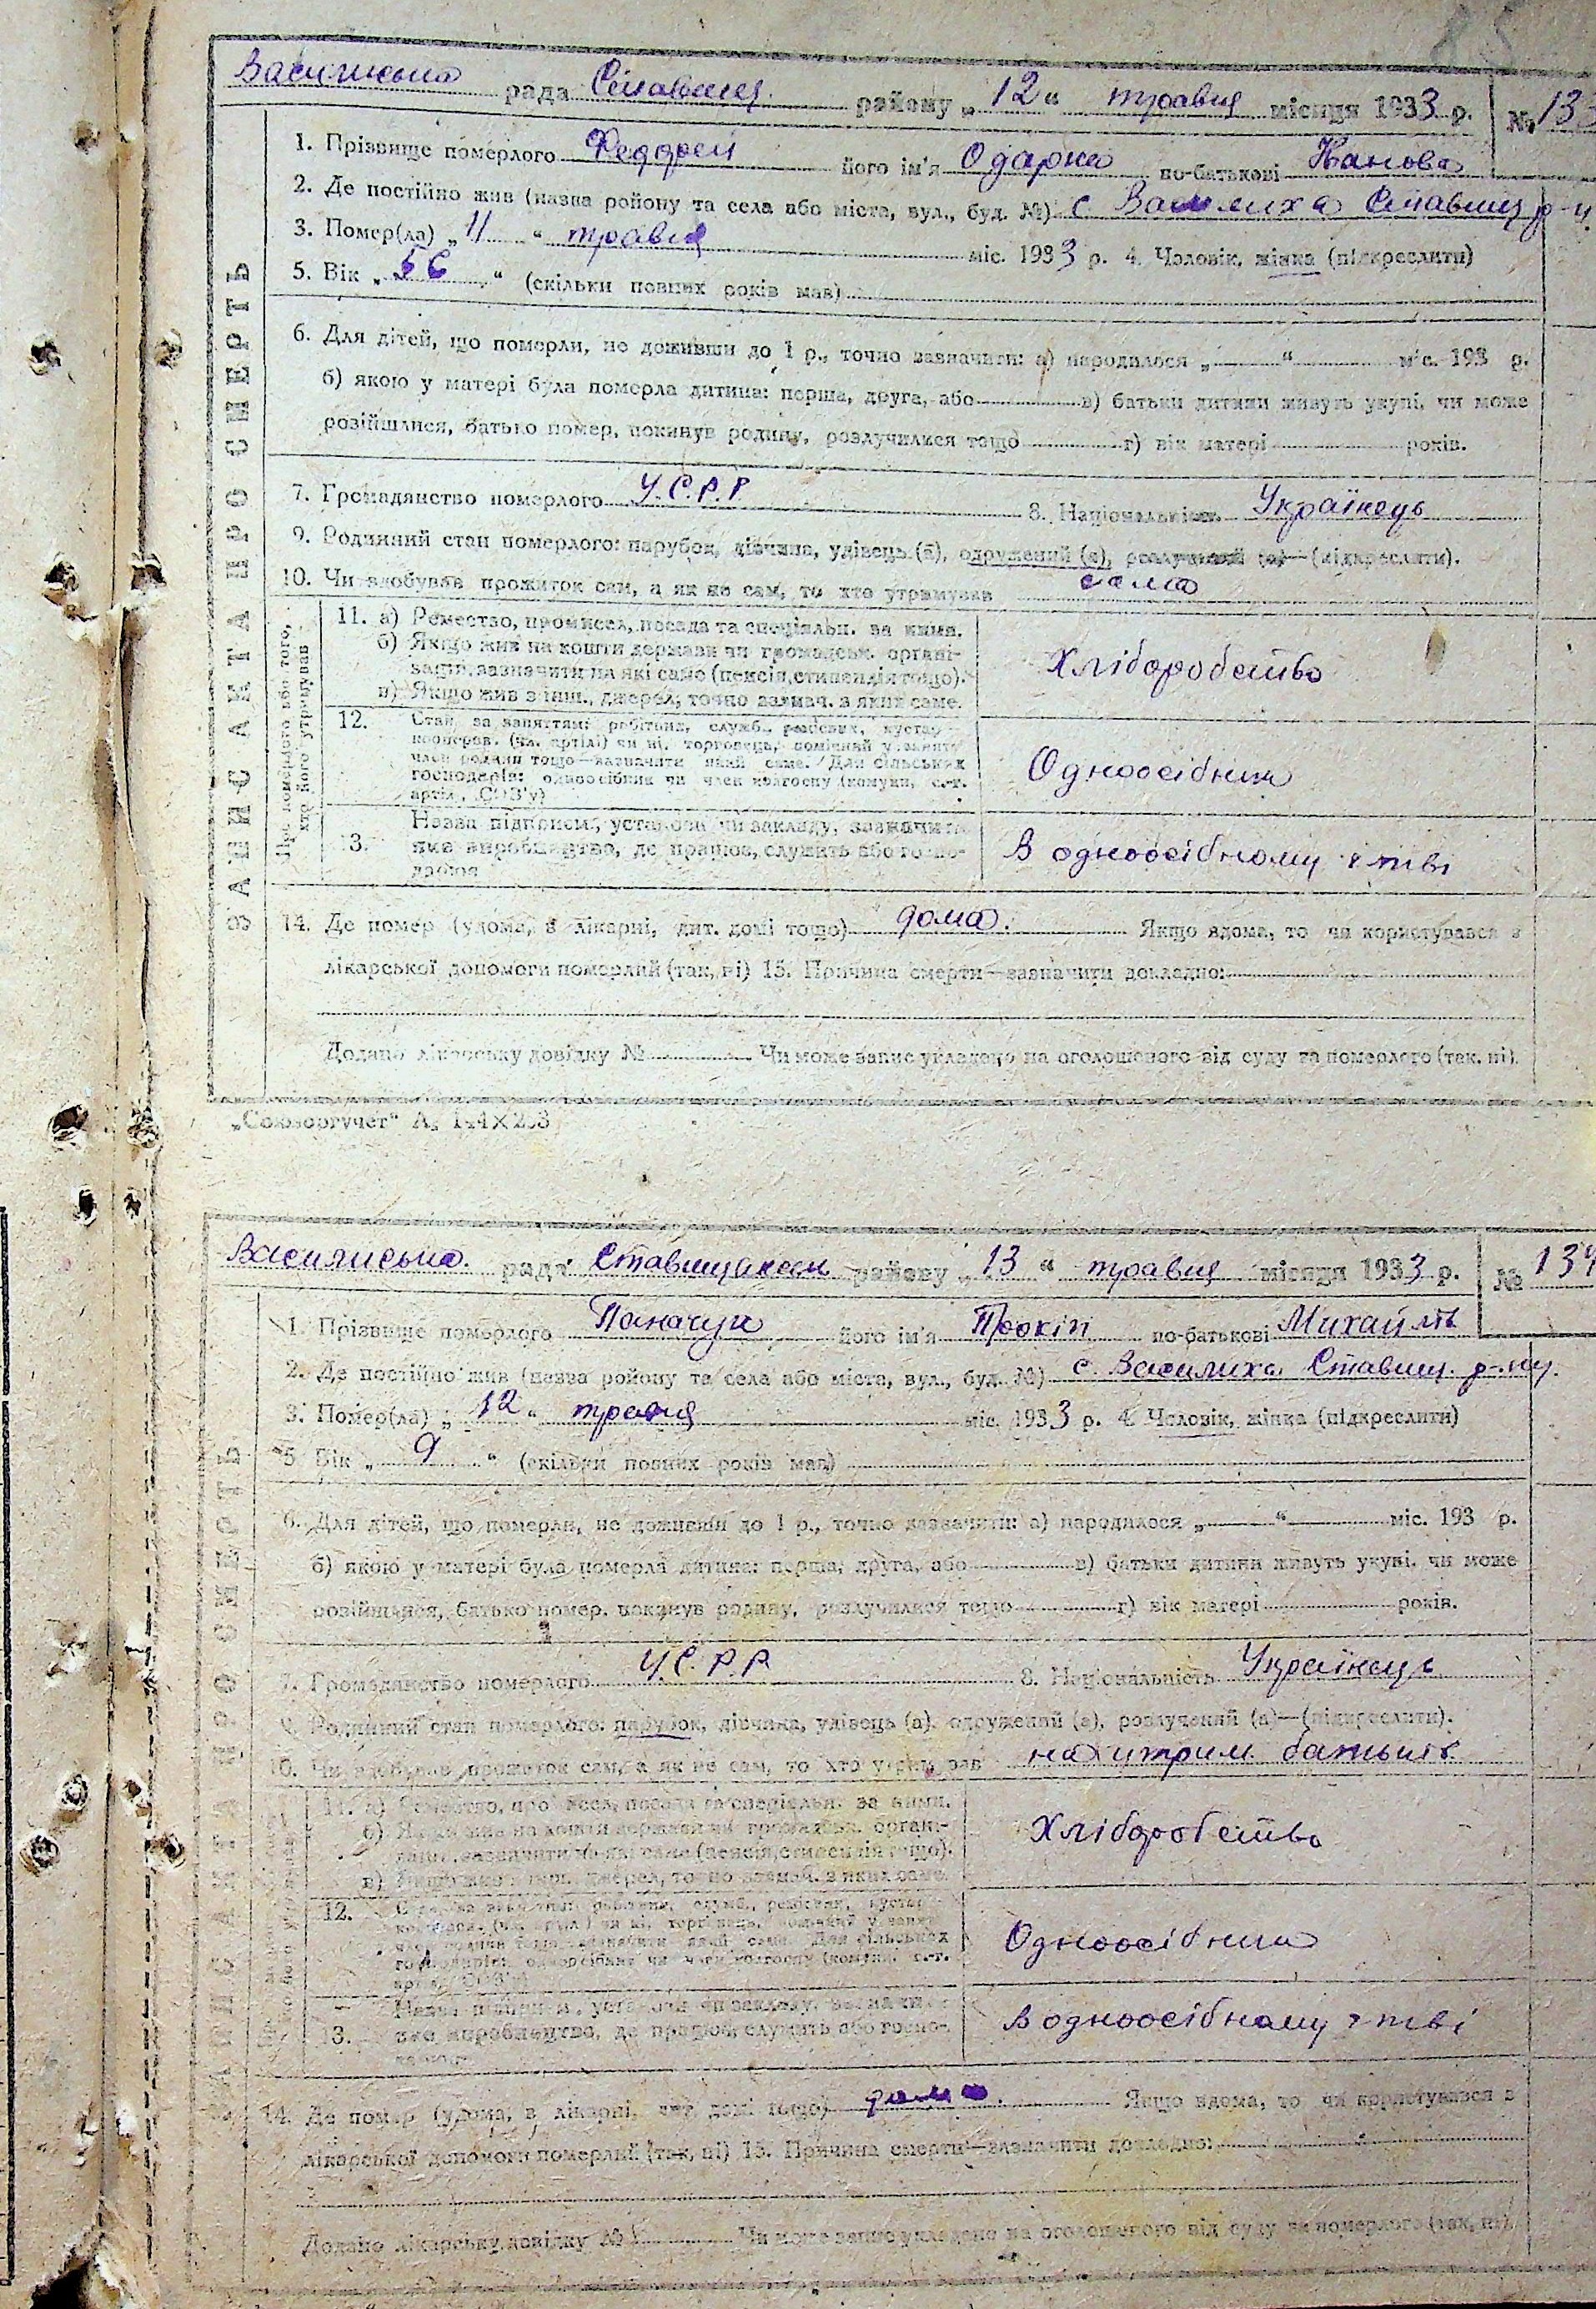 85
Василиська рада Ставищ. району „12“ травня місяця 1933 р. № 133
ЗАПИС АКТА ПРО СМЕРТЬ
1. Прізвище померлого його ім'я Одарка по-батькові Іванова
2. Де постійно жив (назва району та села або міста, вул., буд. №) с Василиха Ставищ р-н
3. Помер(ла) „11“ травня міс. 1933 р. 4. Чоловік, жінка (підкреслити)
5. Вік „56“ (скільки повних років мав)
6. Для дітей, що померли, не доживши до 1 р., точно зазначити: а) народилося „ “ міс. 193 р.
б) якою у матері була померла дитина: перша, друга, або в) батьки дитини живуть укупі, чи може
розійшлися, батько помер, покинув родину, розлучилися тощо г) вік матері років.
7. Громадянство померлого У.С.Р.Р 8. Національність Українець
9. Родинний стан померлого: парубок, дівчина, удівець (а), одружений (а), розлучений (а)—(підкреслити).
10. Чи здобував прожиток сам, а як не сам, то хто утримував сама
Про померлого або того, хто його утримував
11. а) Ремество, промисел, посада та спеціяльн. за ними.
б) Якщо жив на кошти держави чи громадськ. органі-
зацій, зазначити на які саме (пенсія, стипендія тощо).
в) Якщо жив з інш. джерел, точно зазнач. з яких саме.
Хліборобство
12. Стан за заняттям: робітник, служб.,
господарів: одноосібник чи член колгоспу (комуни, с.-г.
артіл., СОЗ'у)
Одноосібник
13. Назва підприєм., установи чи закладу, зазначити
яке виробництво, де працює, служить або госпо-
дарює
В одноосібному г-тві
14. Де помер (удома, в лікарні, дит. домі тощо) дома. Якщо вдома, то чи користувався з
лікарської допомоги померлий (так, ні) 15. Причина смерти—зазначити докладно:
Додано лікарську довідку № Чи може запис укладено на оголошеного від суду за померлого (так, ні).
„Союзоргучет“
Василиська рада Ставищанськ району „13“ травня місяця 1933 р. № 134
ЗАПИС АКТА ПРО СМЕРТЬ
1. Прізвище померлого Паначук його ім'я Прокіп по-батькові Михайлів
2. Де постійно жив (назва району та села або міста, вул., буд. №) с. Василиха Ставищ. р-ну.
3. Помер(ла) „12“ травня міс. 1933 р. 4. Чоловік, жінка (підкреслити)
5. Вік „9“ (скільки повних років мав)
6. Для дітей, що померли, не доживши до 1 р., точно зазначити: а) народилося „ “ міс. 193 р.
б) якою у матері була померла дитина: перша, друга, або в) батьки дитини живуть укупі, чи може
розійшлися, батько помер, покинув родину, розлучилися тощо г) вік матері років.
7. Громадянство померлого У.С.Р.Р. 8. Національність Українець
9. Родинний стан померлого: парубок, дівчина, удівець (а), одружений (а), розлучений (а)—(підкреслити).
10. Чи здобував прожиток сам, а як не сам, то хто утримував на утрим. батьків
11. а) Ремество, промисел, посада та спеціяльн. за ними.
б) Якщо жив на кошти держави чи громадськ. органі-
зацій, зазначити на які саме (пенсія, стипендія тощо).
в) Якщо жив з інш. джерел, точно зазнач. з яких саме.
Хліборобство
12.
господарів: одноосібник чи член колгоспу (комуни, с.-г.
Одноосібник
13. Назва підприєм., установи чи закладу, зазначити
яке виробництво, де працює, служить або госпо-
В одноосібному г-тві
14. Де помер (удома, в лікарні, дит. домі тощо) дома. Якщо вдома, то чи користувався з
лікарської допомоги померлий (так, ні) 15. Причина смерти—зазначити докладно:
Додано лікарську довідку № Чи може запис укладено на оголошеного від суду за померлого (так, ні).